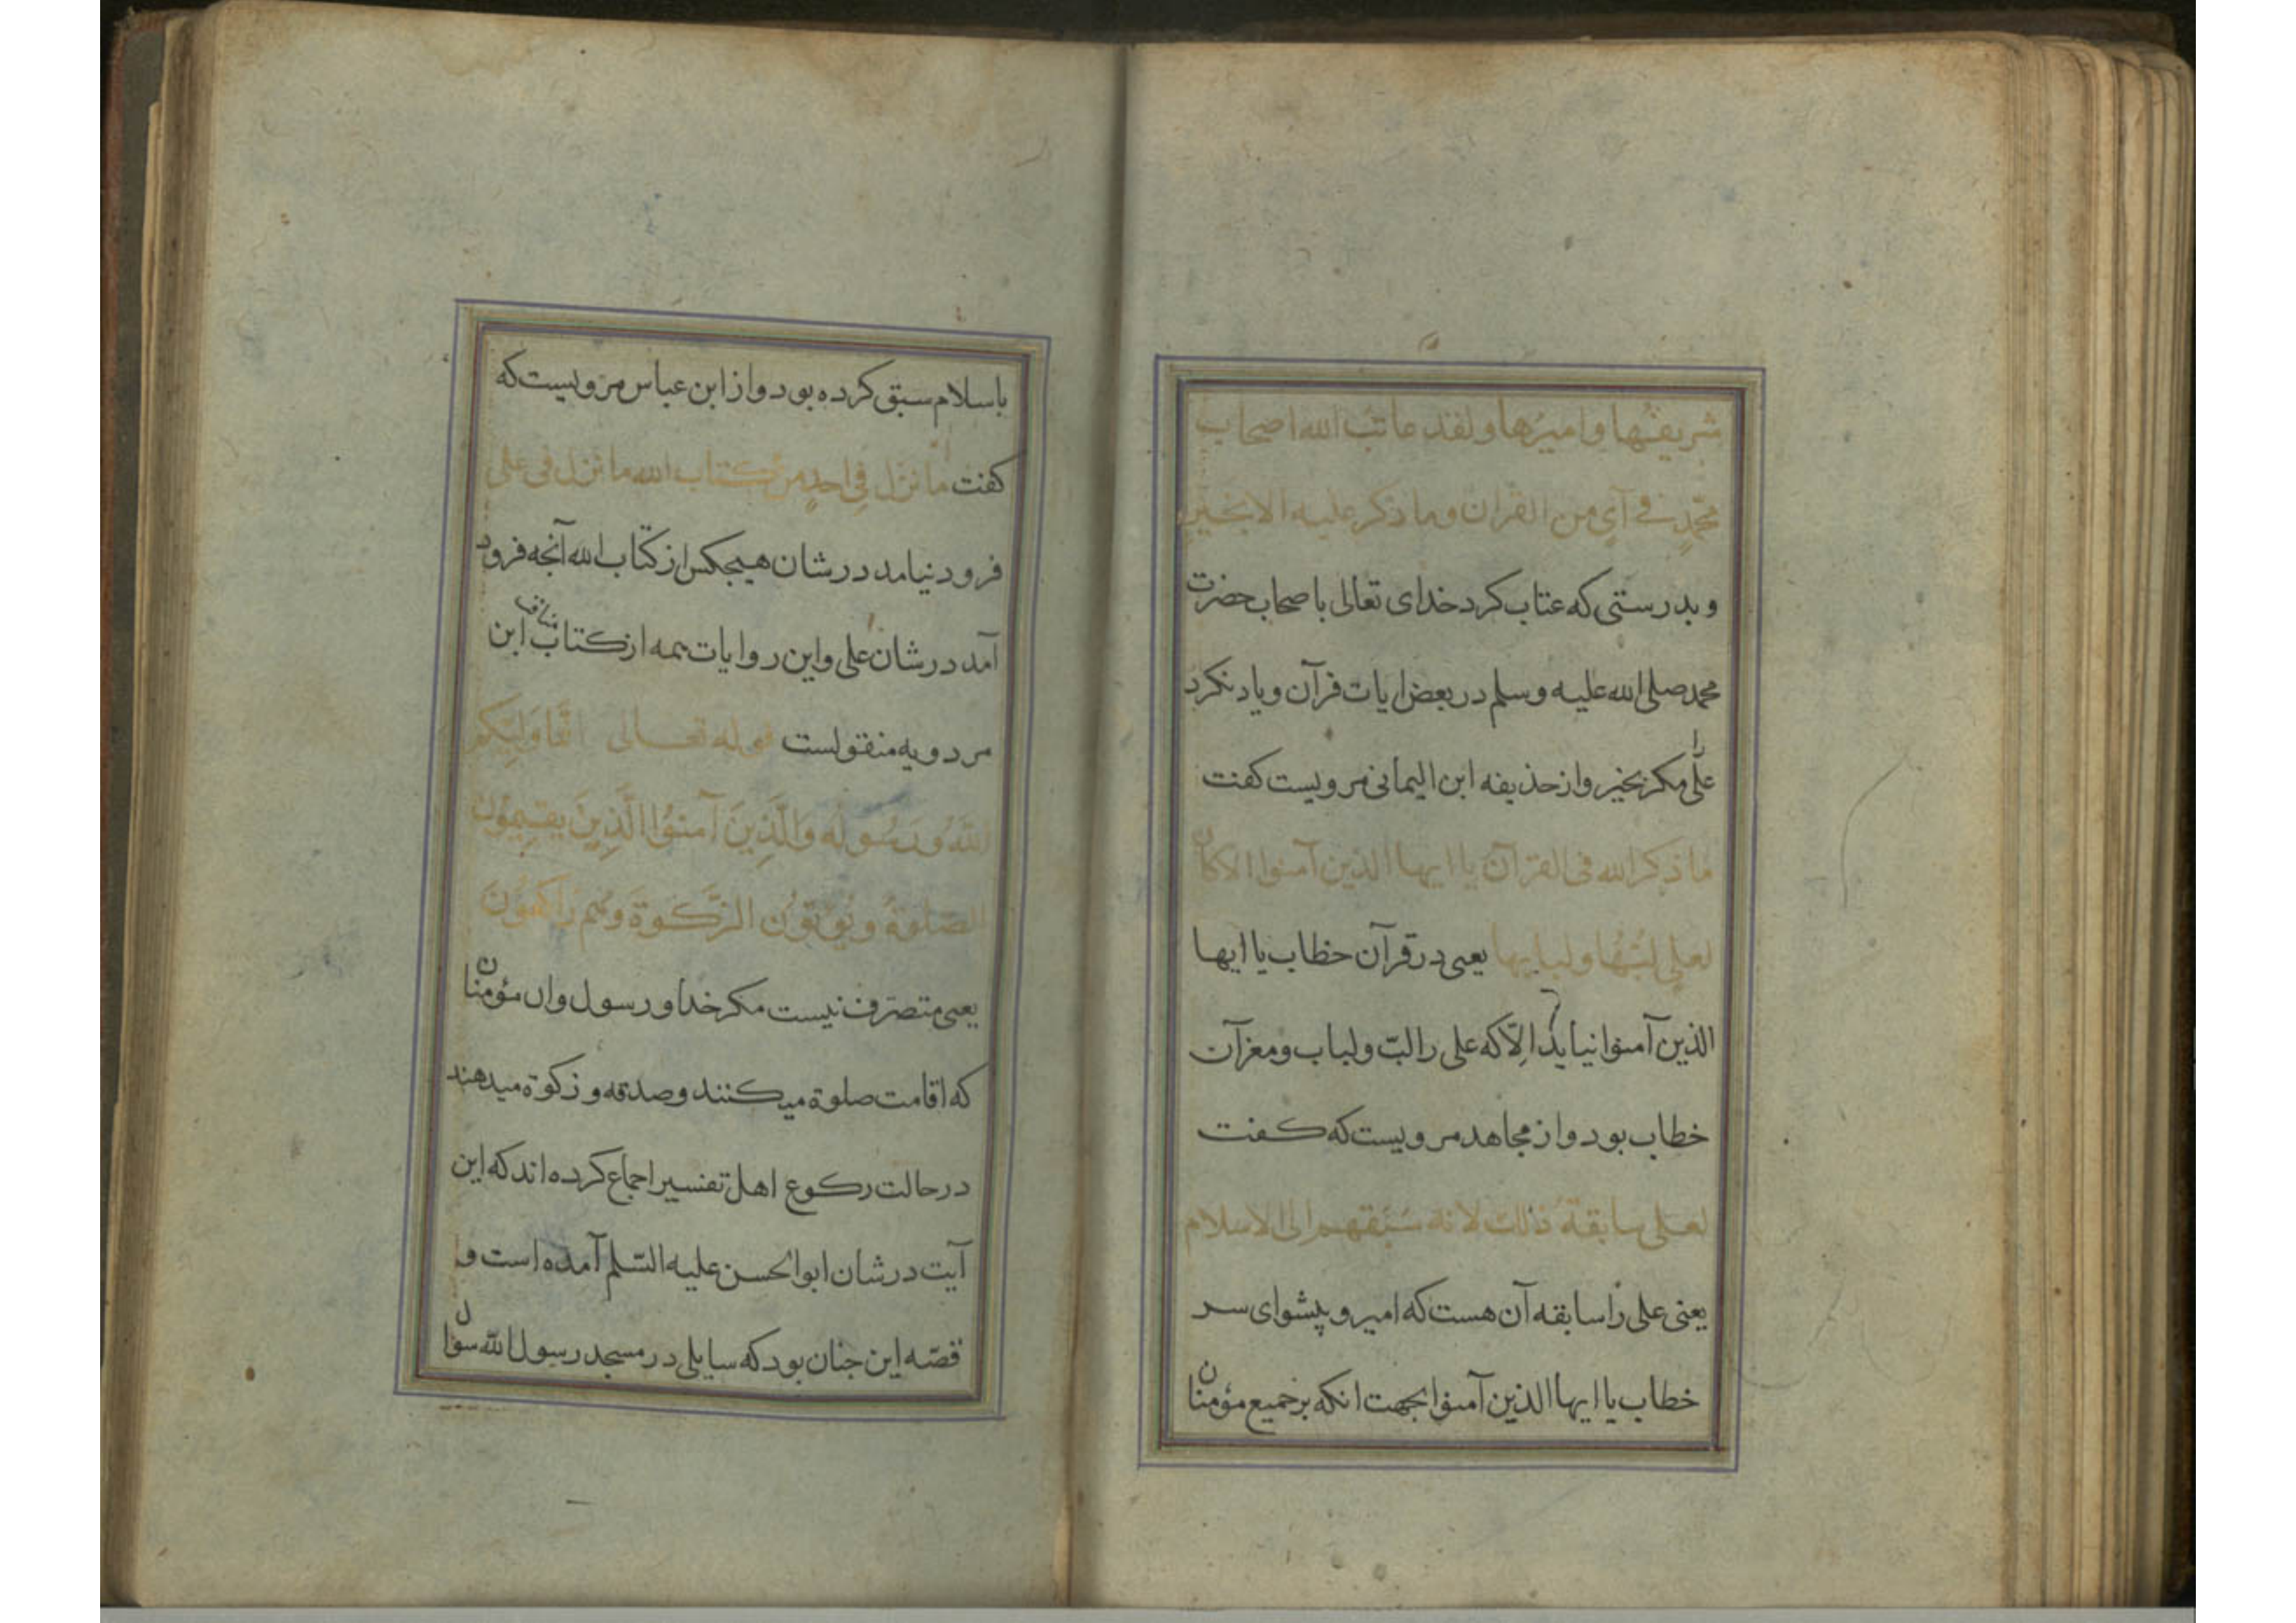 شریفها و امیرها و لقد عاتب الله اصحاب
محمدٍ فی آیٍ من القران وما ذکر علیه الا بخیر
و بدرستی که عتاب کرد خدای تعالی با صحاب حضرت
محمد صلی الله علیه وسلم در بعض ایات قرآن و یاد نکرد
علی را مکر بخیر و از حذیفه ابن الیمانی مرویست کفت
ما ذکر الله فی القرآن یا ایها الذین آمنوا الا کان
لعلی لبها و لبابها یعنی در قرآن خطاب یا ایها
الذین آمنوا نیاید الّا که علی را لبّ و لباب و مغز آن
خطاب بود و از مجاهد مرویست که کفت
لعلی سابقة ذلک لانه سبقهم الی الاسلام
یعنی علی را سابقه آن هست که امیر و پیشوای سر
خطاب یا ایها الذین آمنوا بجهت انکه بر جمیع مؤمنان
باسلام سبق کرده بود و از ابن عباس مرویست که
کفت ما نزل فی احدٍ من کتاب الله ما نزل فی علی
فرود نیامد در شان هیچکس از کتاب الله آنچه فرود
آمد در شان علی و این روایات همه از کتاب مناقب ابن
مردویه منقولست قوله تعالی انّما ولیّکم
اللّه ورسوله والّذین آمنوا الّذین یقیمون
الصّلوة و یؤتون الزّکوة وهم راکعون
یعنی متصرّف نیست مکر خدا و رسول وان مؤمنان
که اقامت صلوة میکنند و صدقه و زکوة میدهند
در حالت رکوع اهل تفسیر اجماع کرده اند که این
آیت در شان ابو الحسن علیه السّلم آمده است و
قصّه این چنان بود که سایلی در مسجد رسول الله سؤال